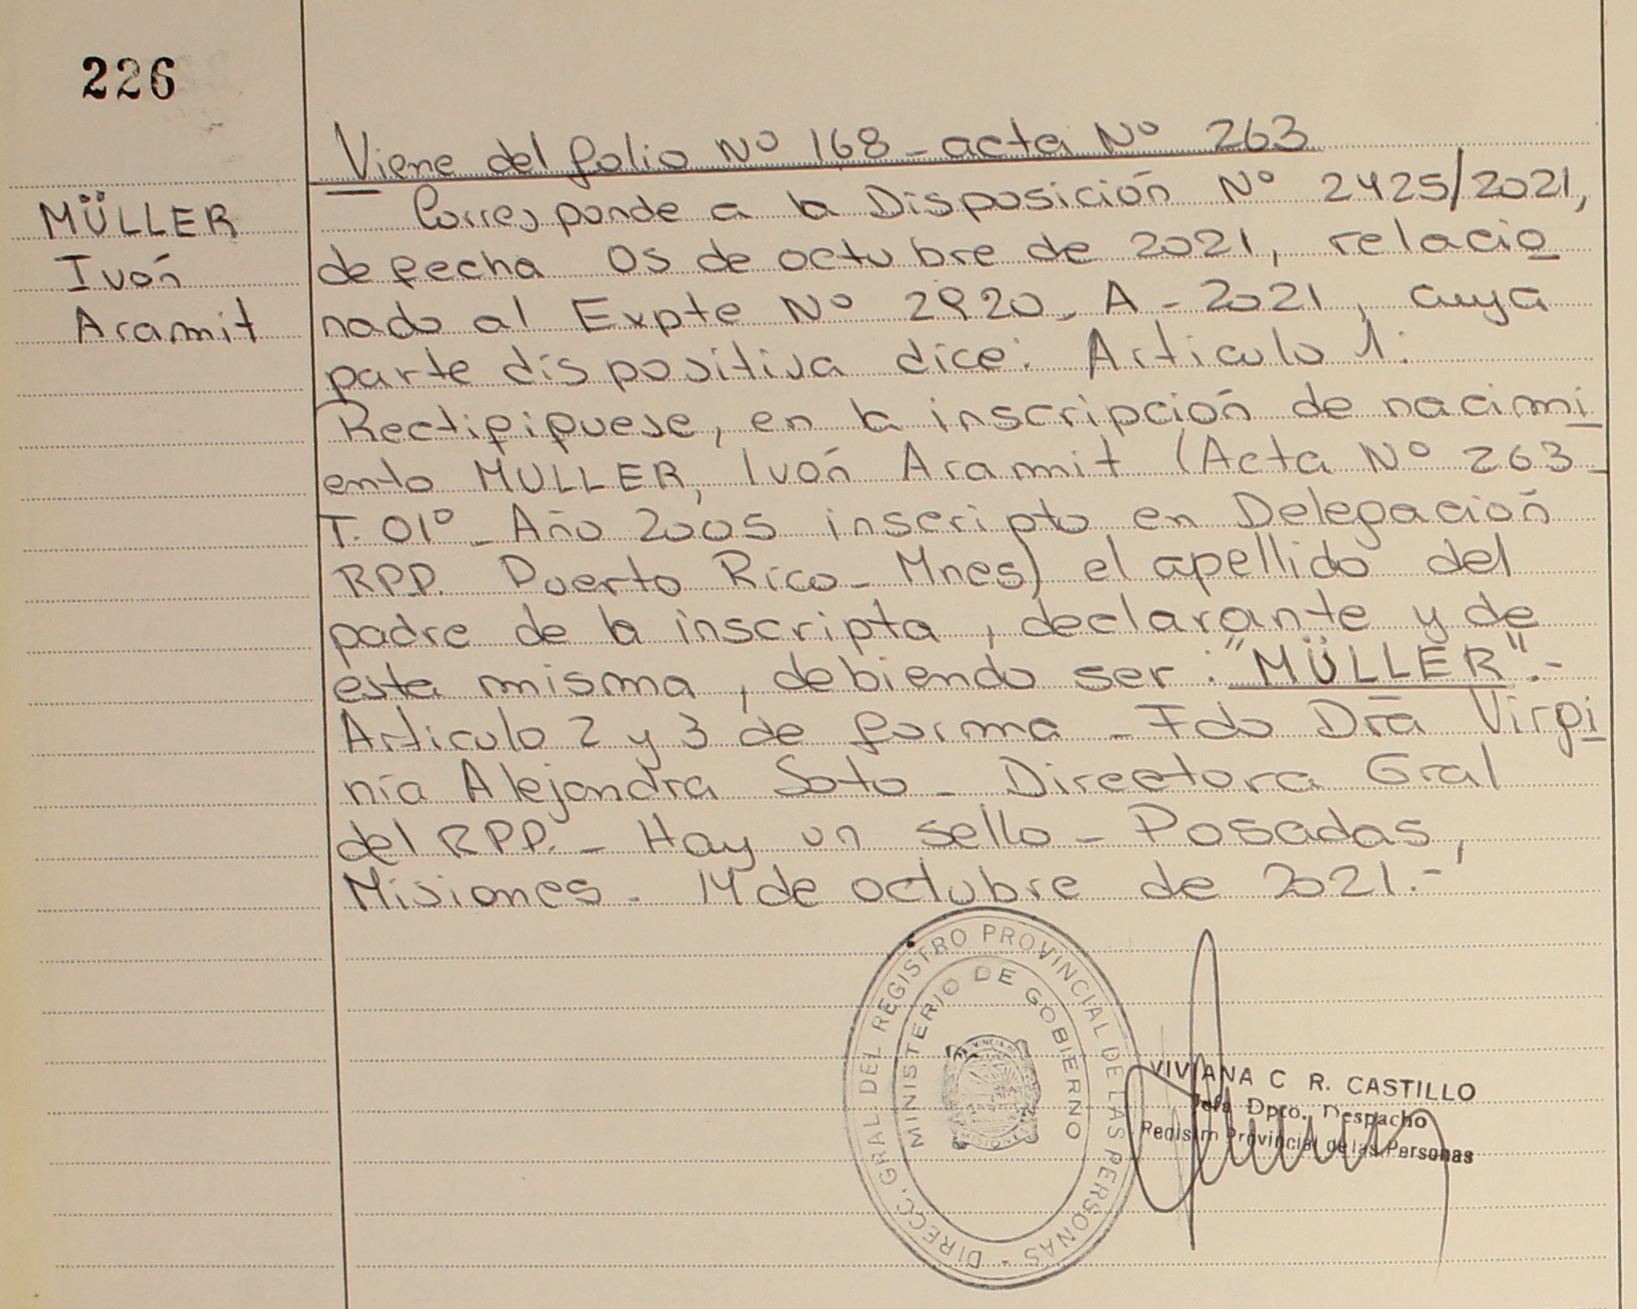 226
MÜLLER
Ivón
Aramit
Viene del folio Nº 168 - acta Nº 263
Corresponde a la Disposición Nº 2425/2021,
de fecha 05 de octubre de 2021, relacio
nado al Expte Nº 2920- A - 2021, cuya
parte dispositiva dice: Articulo 1:
Rectifiquese, en la inscripción de nacimi
ento MULLER, Ivón Aramit (Acta Nº 263-
T. 01º - Año 2005 inscripto en Delegación
RPP. Puerto Rico - Mnes) el apellido del
padre de la inscripta, declarante y de
esta misma, debiendo ser: "MÜLLER".-
Articulo 2 y 3 de forma - Fdo Dra Virgi
nia Alejandra Soto - Directora Gral
del RPP. - Hay un sello - Posadas,
Misiones - 14 de octubre de 2021.-
DIRECC. GRAL DEL REGISTRO PROVINCIAL DE LAS PERSONAS -
MINISTERIO DE GOBIERNO
VIVIANA C R. CASTILLO
Jefa Dpto. Despacho
Registro Provincial de las Personas